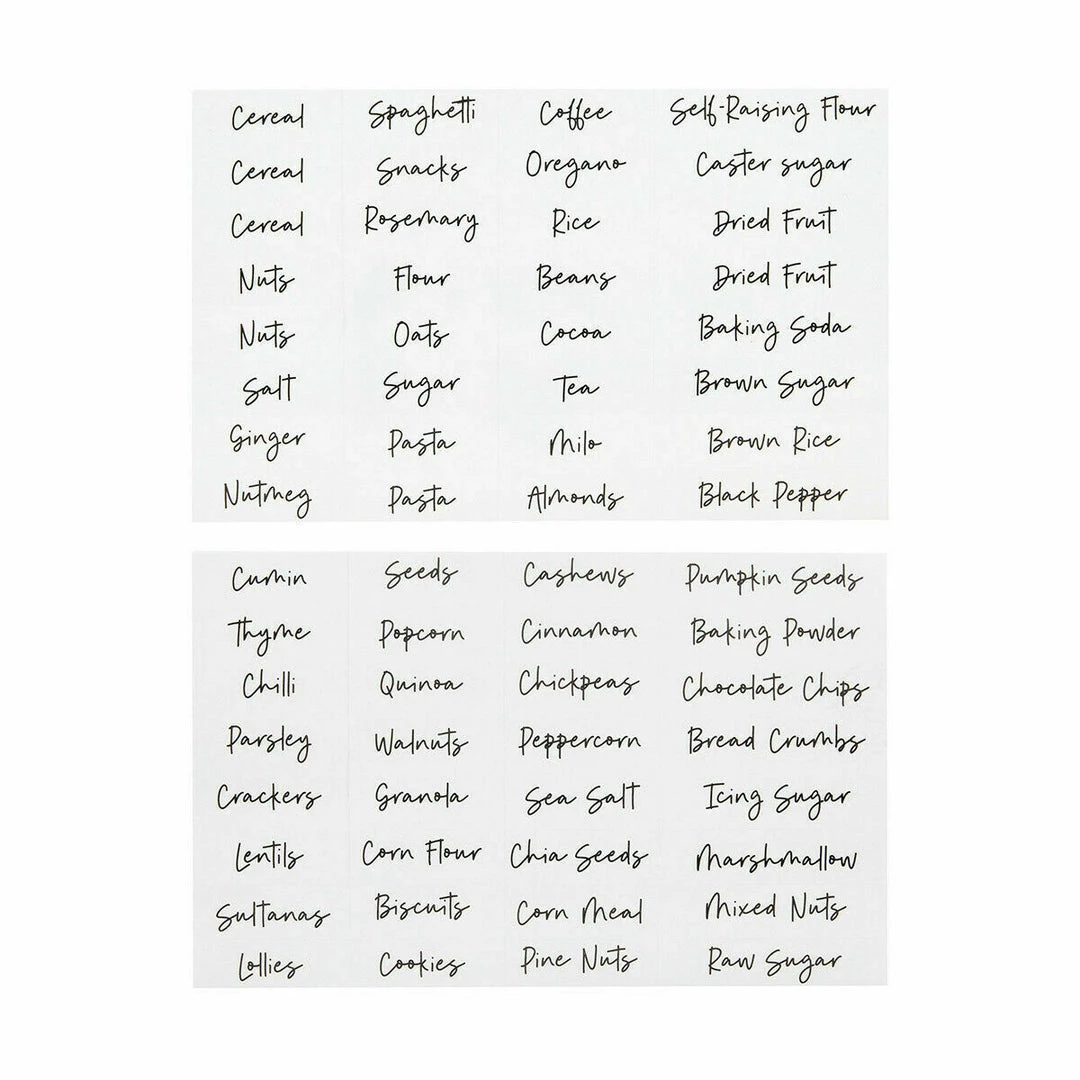 Cereal Spaghetti Coffee Self-Raising Flour
Cereal Snacks Oregano Caster sugar
Cereal Rosemary Rice Dried Fruit
Nuts Flour Beans Dried Fruit
Nuts Oats Cocoa Baking Soda
Salt Sugar Tea Brown Sugar
Ginger Pasta Milo Brown Rice
Nutmeg Pasta Almonds Black Pepper
Cumin Seeds Cashews Pumpkin Seeds
Thyme Popcorn Cinnamon Baking Powder
Chilli Quinoa Chickpeas Chocolate Chips
Parsley Walnuts Peppercorn Bread Crumbs
Crackers Granola Sea Salt Icing Sugar
Lentils Corn Flour Chia Seeds Marshmallow
Sultanas Biscuits Corn Meal Mixed Nuts
Lollies Cookies Pine Nuts Raw Sugar